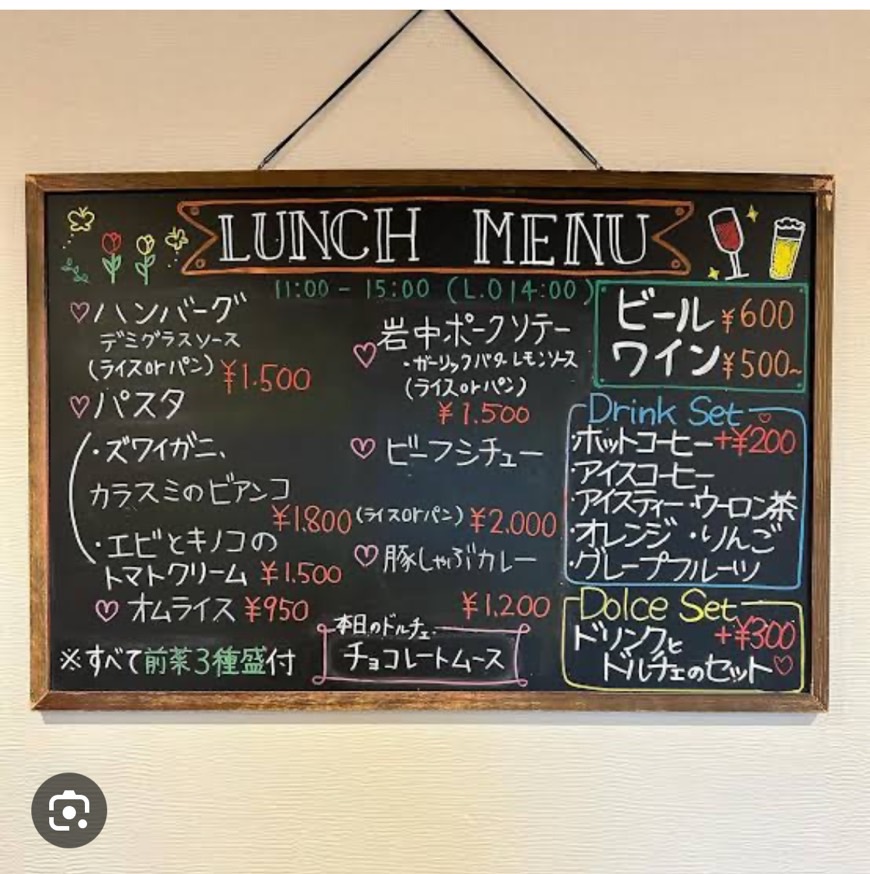 LUNCH MENU
11:00 - 15:00 (L.O 14:00)
♡ハンバーグ
デミグラスソース
(ライスorパン) ¥1.500
♡パスタ
・ズワイガニ、
カラスミのビアンコ
¥1.800
・エビとキノコの
トマトクリーム ¥1.500
♡オムライス ¥950
※すべて前菜3種盛付
♡岩中ポークソテー
・ガーリックバターレモンソース
(ライスorパン)
¥1.500
♡ビーフシチュー
(ライスorパン) ¥2.000
♡豚しゃぶカレー
¥1,200
本日のドルチェ
チョコレートムース
ビール ¥600
ワイン ¥500~
Drink Set♡
・ホットコーヒー +¥200
・アイスコーヒー
・アイスティー・ウーロン茶
・オレンジ ・りんご
・グレープフルーツ
Dolce Set
ドリンクと +¥300
ドルチェのセット♡